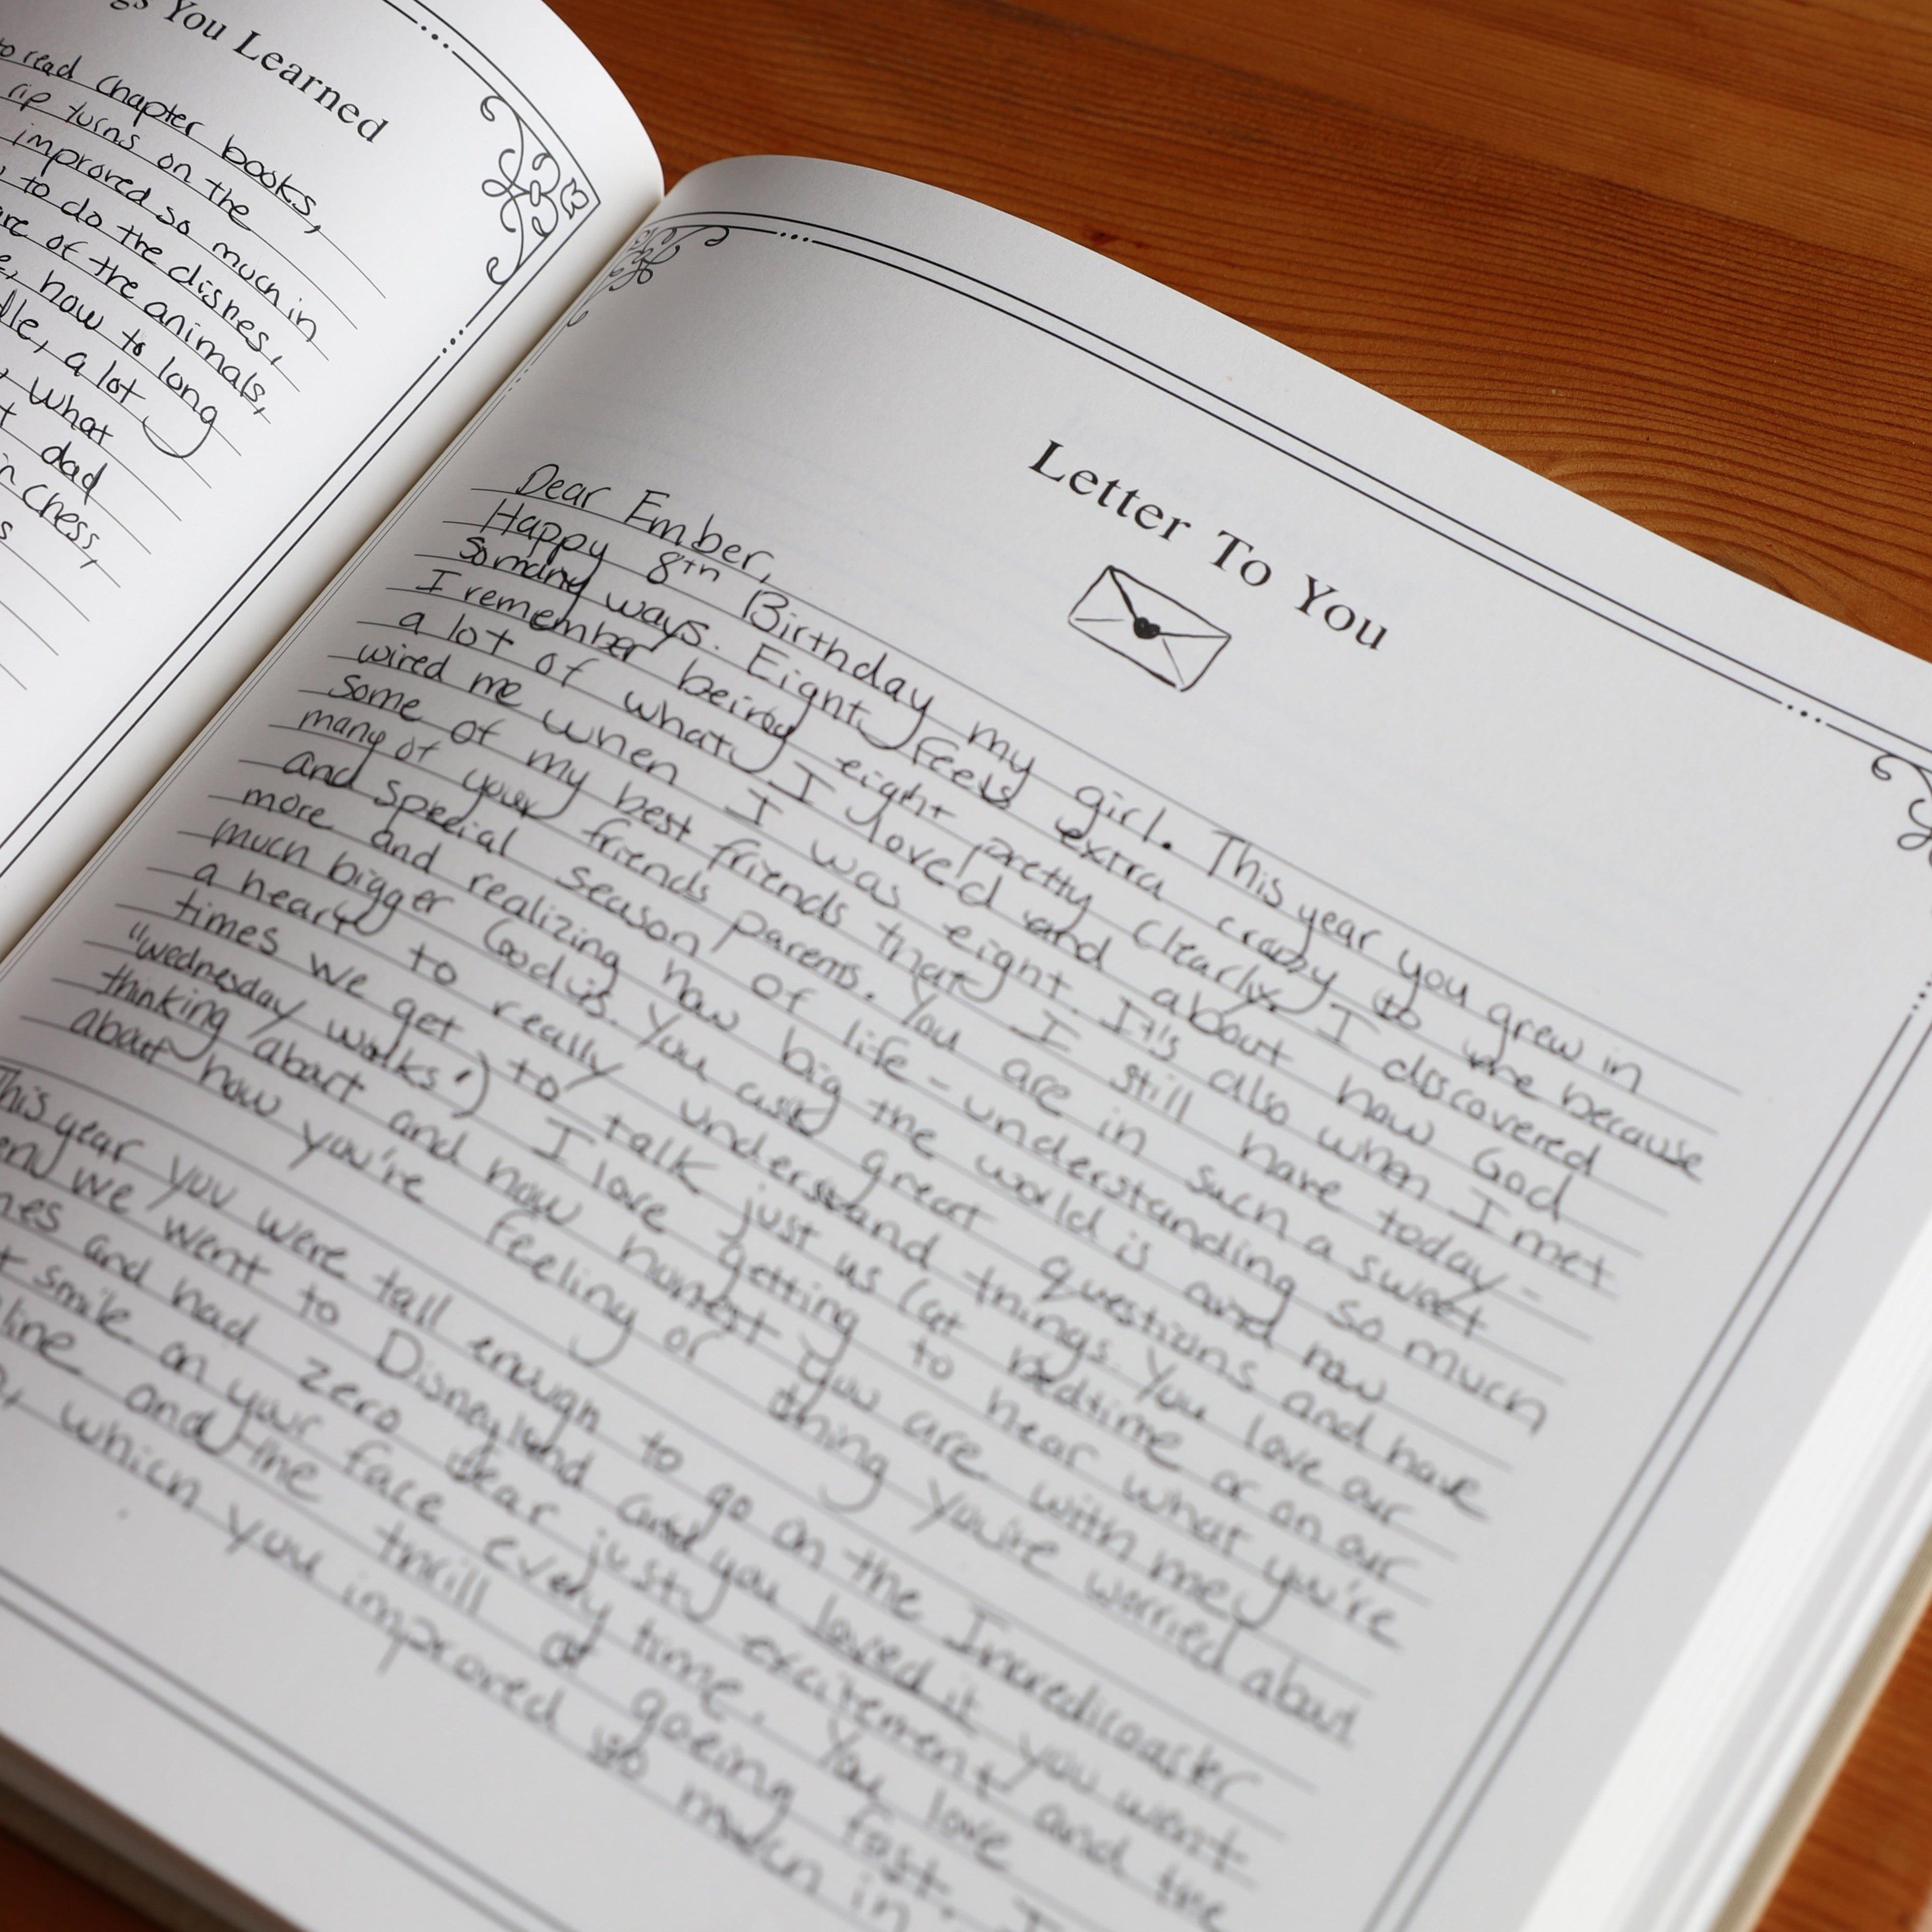 gs You Learned
to read chapter books,
rip turns on the
improved so much in
to do the dishes,
are of the animals,
how to long
a lot
what
dad
in chess,
s
Letter To You
Dear Ember,
Happy 8th Birthday my girl. This year you grew in
so many ways. Eight feels extra crazy to me because
I remember being eight pretty clearly. I discovered
a lot of what I loved and about how God
wired me when I was eight. It's also when I met
some of my best friends that I still have today -
many of your friends parents. You are in such a sweet
and special season of life - understanding so much
more and realizing how big the world is and how
much bigger God is. You ask great questions and have
a heart to really understand things. You love our
times we get to talk just us (at bedtime or on our
"wednesday walks") I love getting to hear what you're
thinking about and how honest you are with me
about how you're feeling or thing you're worried about
This year you were tall enough to go on the Incredicoaster
we went to Disneyland and you loved it you went
and had zero fear just excitement and the
smile on your face every time. You love
line and the thrill of going fast. I
which you improved so much in